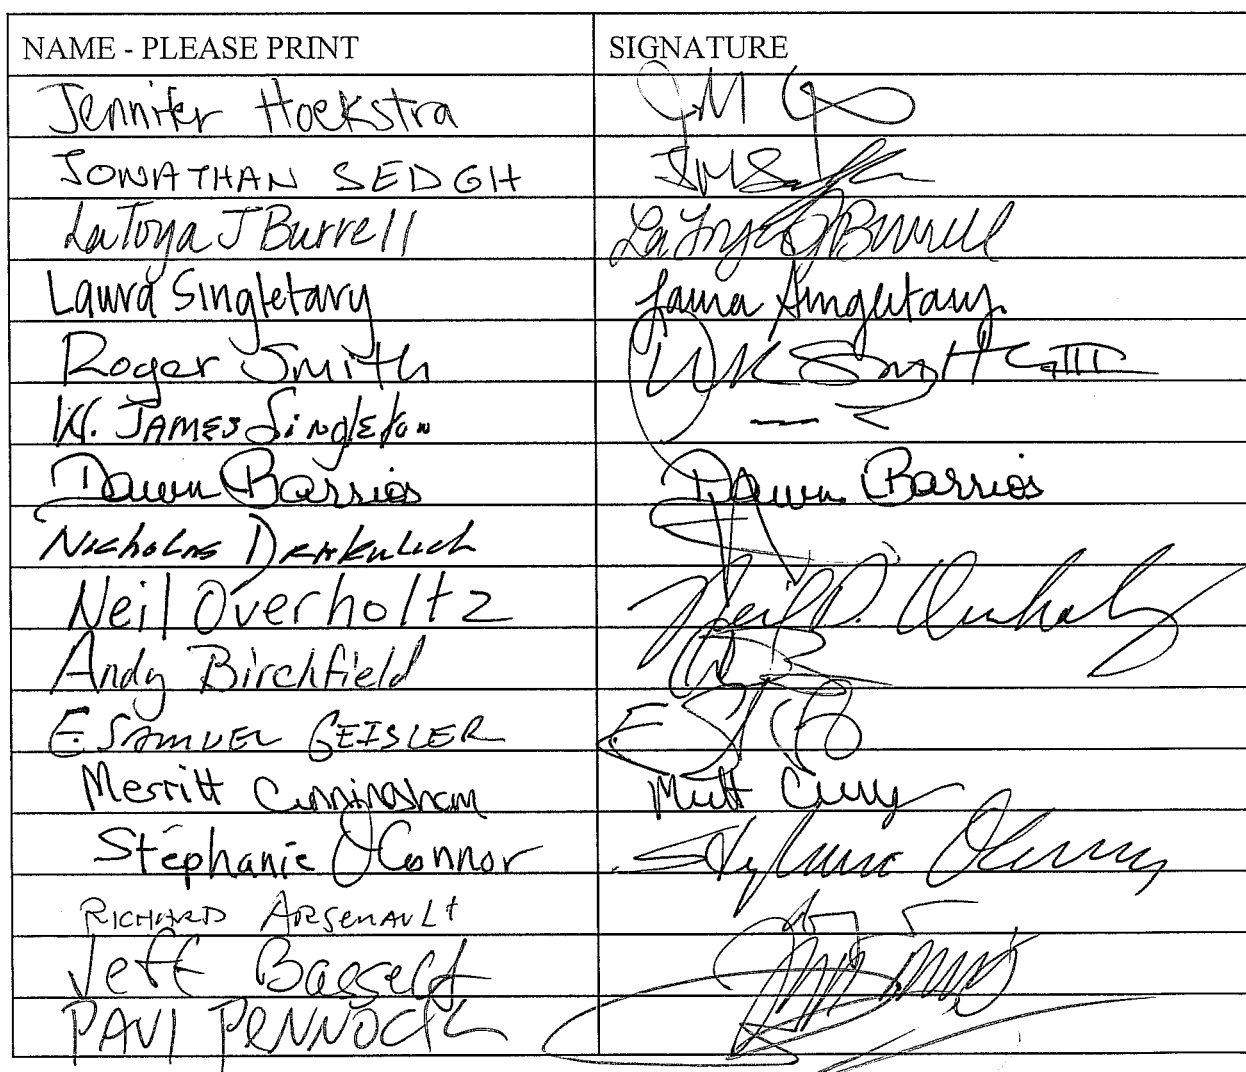 NAME - PLEASE PRINT SIGNATURE
Jennifer Hoekstra
JONATHAN SEDGH
LaToya J Burrell LaToya J Burrell
Laura Singletary Laura Singletary
Roger Smith
W. JAMES Singleton
Dawn Barrios Dawn Barrios
Nicholas Drakulich
Neil Overholtz Neil D. Overholtz
Andy Birchfield
E. SAMUEL GEISLER
Merritt Cunningham
Stephanie O'Connor Stephanie O'Connor
RICHARD ARSENAULT
Jeff Bassett
PAUL PENNOCK